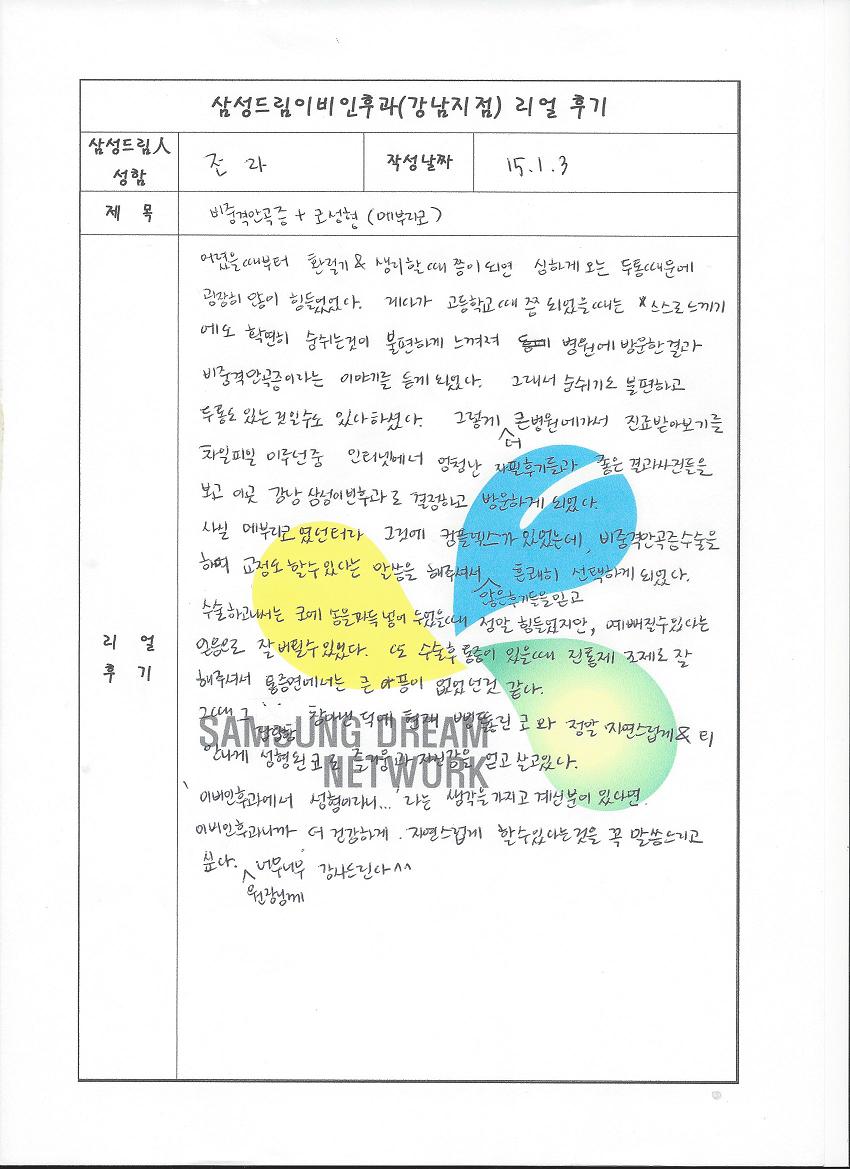 삼성드림이비인후과(강남지점) 리얼 후기
삼성드림人 성함
전 라
작성날짜
15.1.3
제 목
비중격만곡증 + 코성형 (메부리코)
리 얼 후 기
어렸을때부터 환절기 & 생리할때쯤이 되면 심하게 오는 두통때문에
굉장히 많이 힘들었었다. 게다가 고등학교때쯤 되었을때는 스스로 느끼기
에도 확연히 숨쉬는것이 불편하게 느껴져 병원에 방문한결과
비중격만곡증이라는 이야기를 듣게 되었다. 그래서 숨쉬기도 불편하고
두통도 있는것일수도 있다하셨다. 그렇게 더 큰병원에가서 진료받아보기를
차일피일 미루던중 인터넷에서 엄청난 자필후기들과 좋은 결과사진들을
보고 이곳 강남 삼성이비인후과로 결정하고 방문하게 되었다.
사실 메부리코였던터라 그것에 컴플렉스가 있었는데, 비중격만곡증수술을
하며 교정도 할수있다는 말씀을 해주셔서 많은후기들을믿고 흔쾌히 선택하게 되었다.
수술하고나서는 코에 솜을가득 넣어 두었을때 정말 힘들었지만, 예뻐질수있다는
믿음으로 잘 버틸수있었다. 또 수술후 통증이 있을때 진통제 조제로 잘
해주셔서 통증면에서는 큰 아픔이 없었던것 같다.
그때 그 답답함 참아낸 덕에 현재 뻥뚫린 코와 정말 자연스럽게 & 티
안나게 성형된 코로 즐거움과 자신감을 얻고 살고있다.
'이비인후과에서 성형이라니...' 라는 생각을 가지고 계신분이 있다면
이비인후과니까 더 건강하게, 자연스럽게 할수있다는것을 꼭 말씀드리고
싶다. 원장님께 너무너무 감사드린다^^
SAMSUNG DREAM
NETWORK